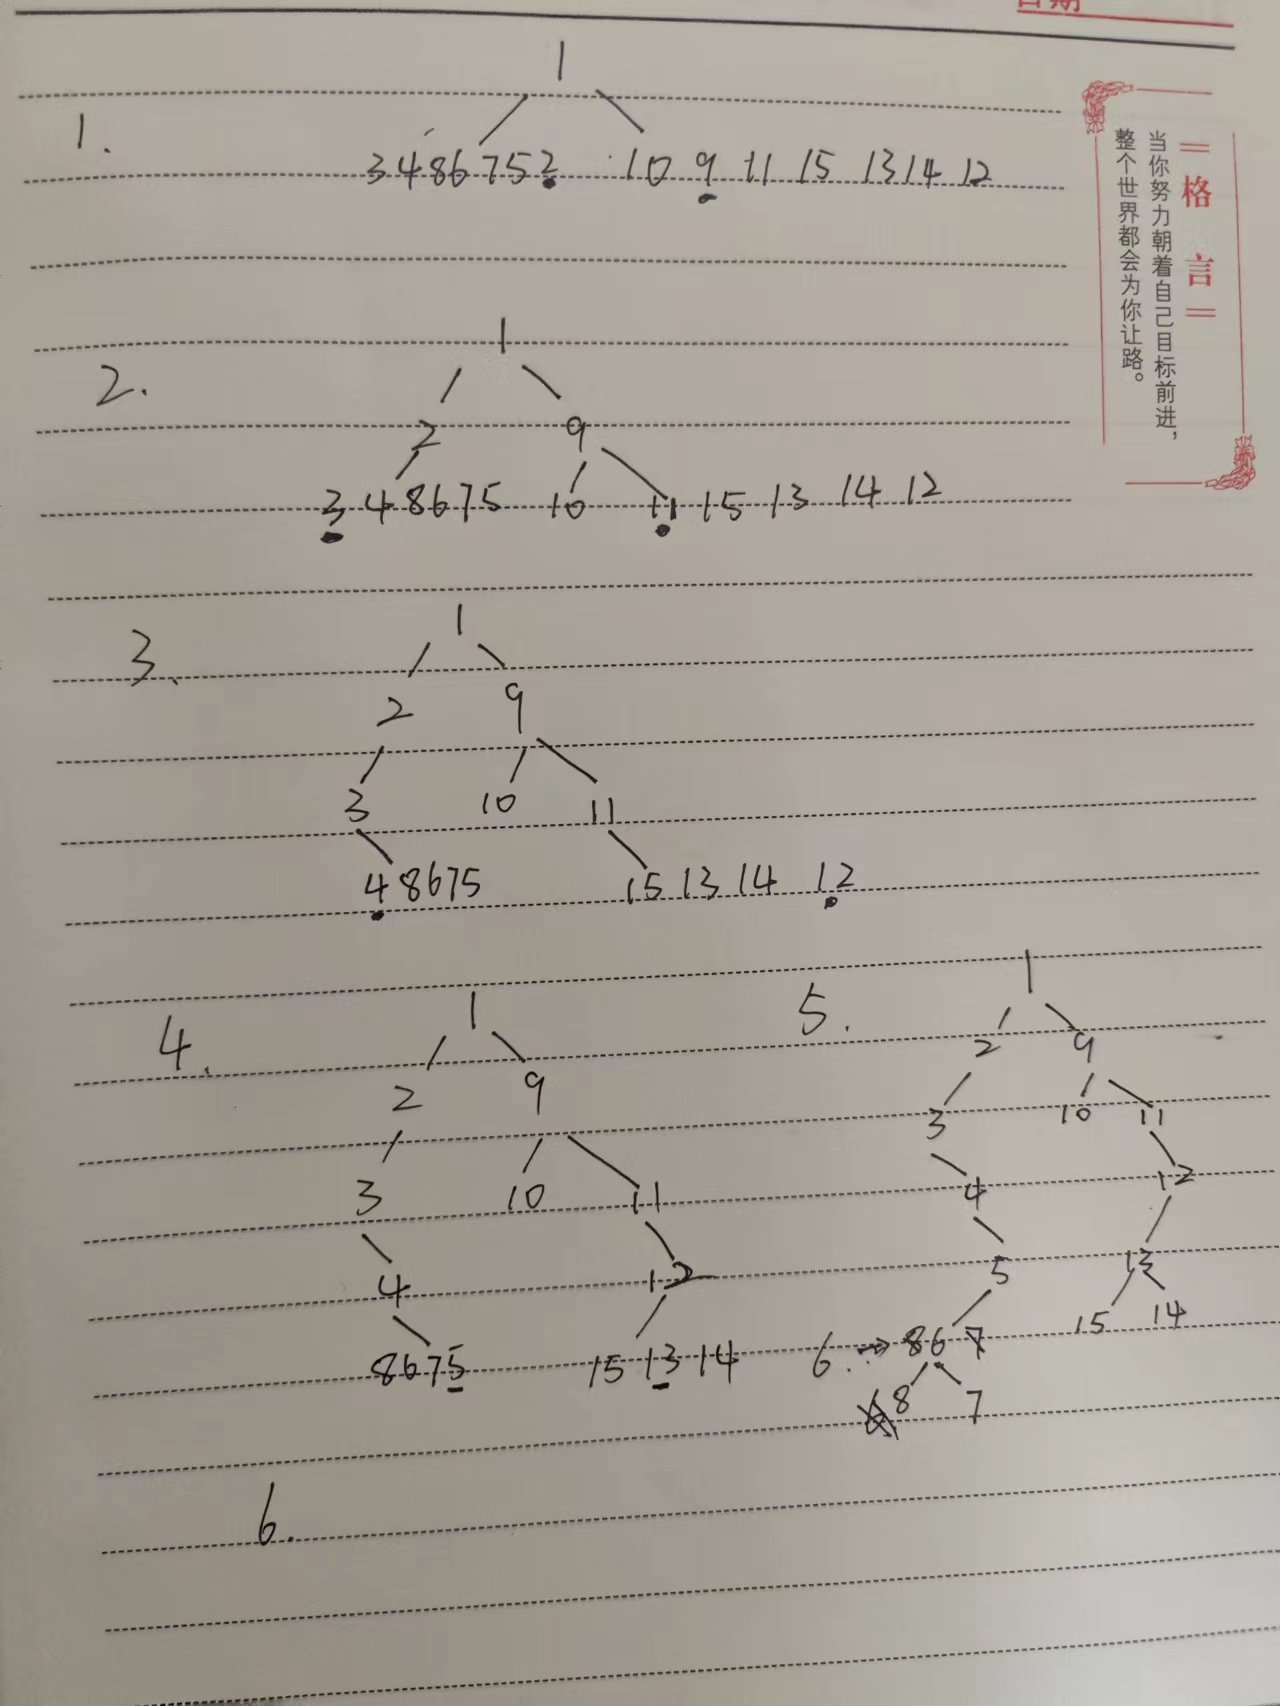 日期
格言
当你努力朝着自己目标前进,
整个世界都会为你让路。
1.
1
3 4 8 6 7 5 2 10 9 11 15 13 14 12
2.
1
2 9
3 4 8 6 7 5 10 11 15 13 14 12
3.
1
2 9
3 10 11
4 8 6 7 5 15 13 14 12
4.
1
2 9
3 10 11
4 12
8 6 7 5 15 13 14
5.
1
2 9
3 10 11
4 12
5 13
6. 8 6 7 15 14
8 7
6.